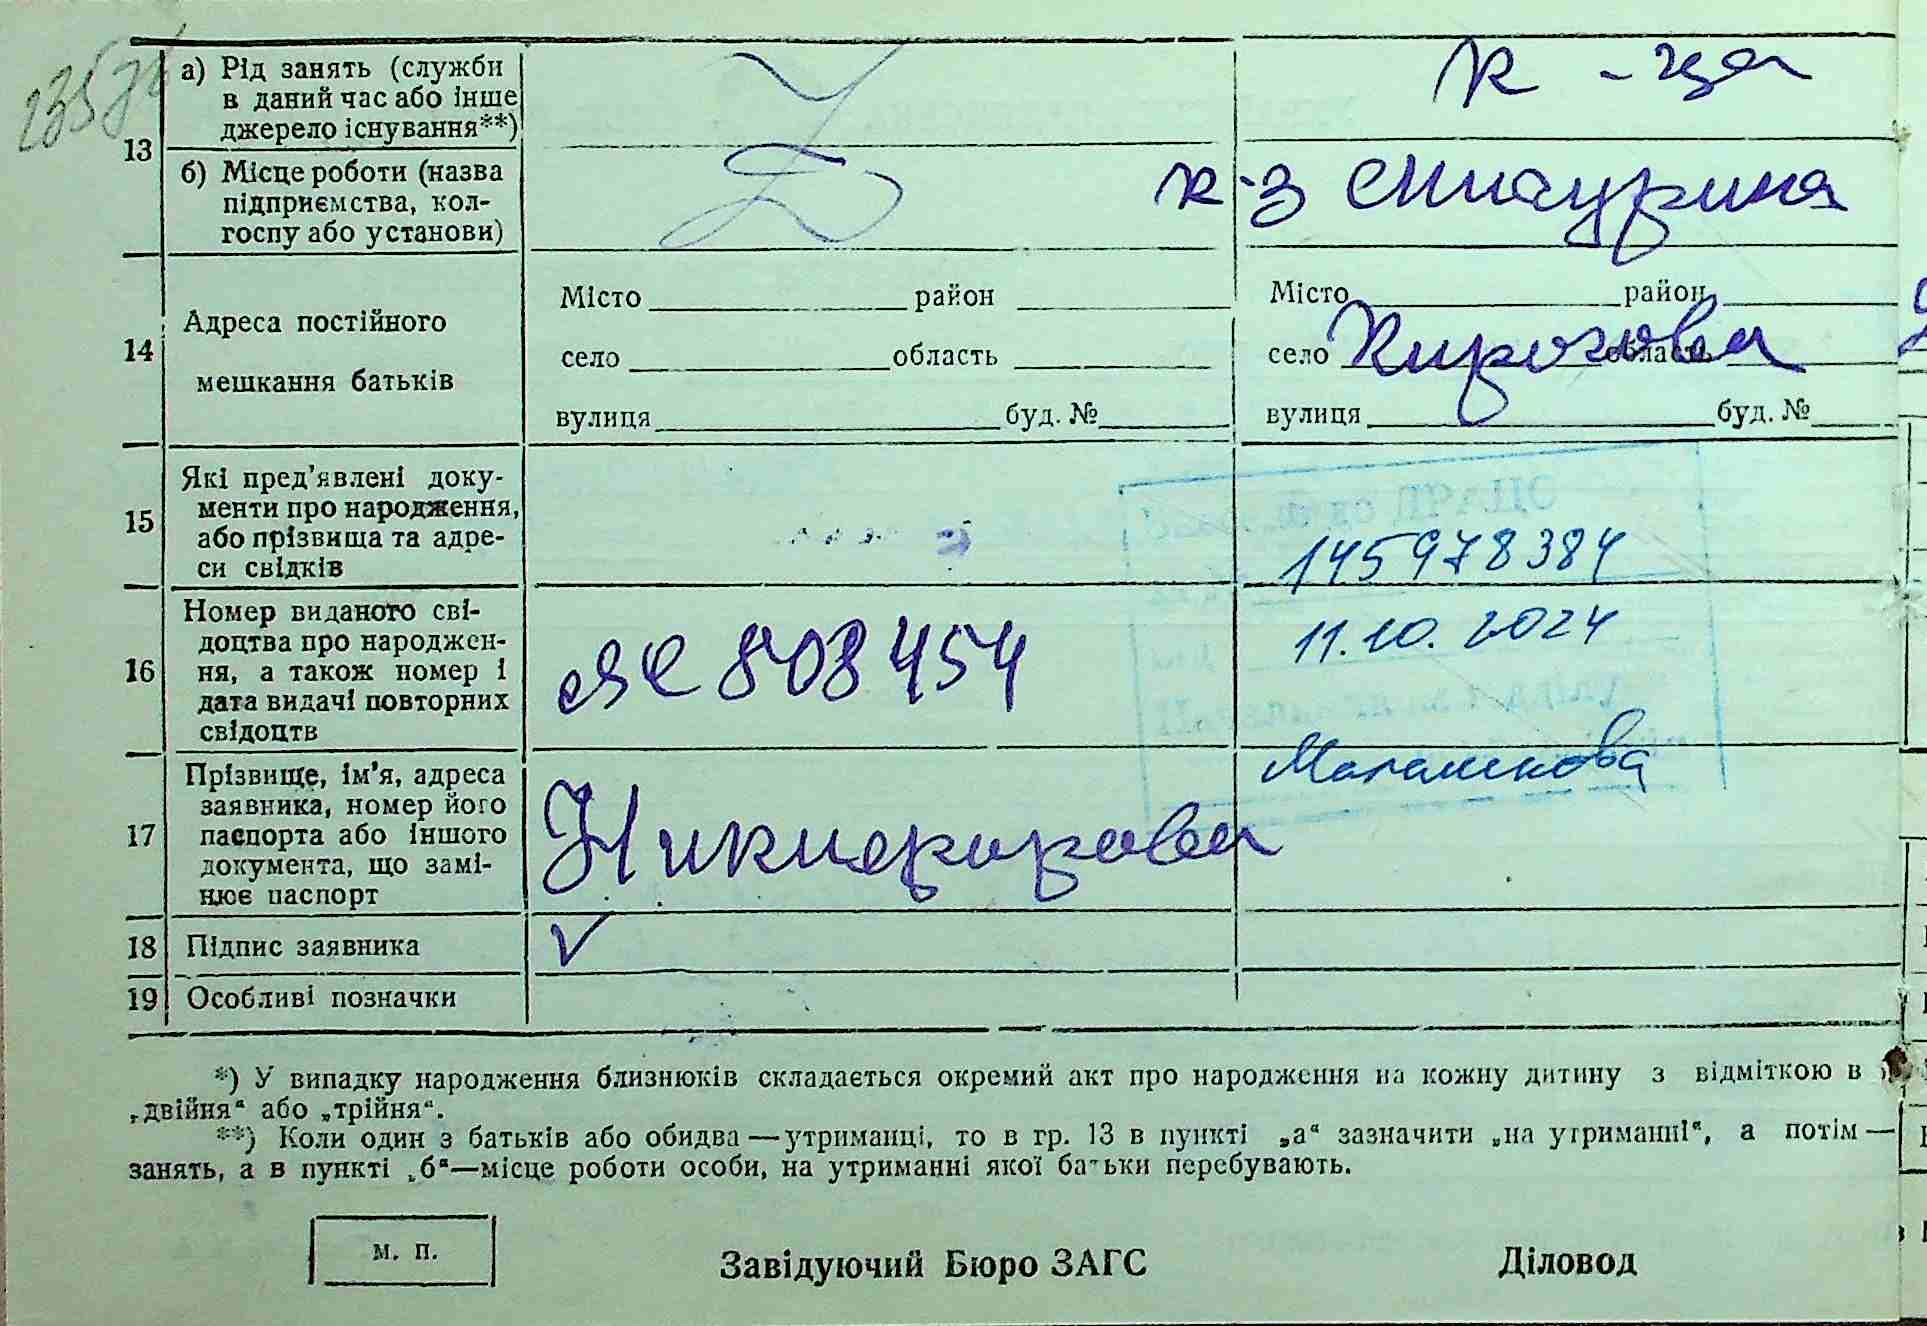 а) Рід занять (служби
в даний час або інше
джерело існування**)
к-ца
13
б) Місце роботи (назва
підприємства, кол-
госпу або установи)
к-з Мичурина
14
Адреса постійного
мешкання батьків
Місто район
село область
вулиця буд. №
Місто район
село Кирогова область
вулиця буд. №
15
Які пред'явлені доку-
менти про народження,
або прізвища та адре-
си свідків
145978384
16
Номер виданого сві-
доцтва про народжен-
ня, а також номер і
дата видачі повторних
свідоцтв
ЯЄ 808454
11.10.2024
17
Прізвище, ім'я, адреса
заявника, номер його
паспорта або іншого
документа, що замі-
нює паспорт
Никифорова
18 Підпис заявника
19 Особливі позначки
*) У випадку народження близнюків складається окремий акт про народження на кожну дитину з відміткою в
„двійня“ або „трійня“.
**) Коли один з батьків або обидва — утриманці, то в гр. 13 в пункті „а“ зазначити „на утриманні“, а потім —
занять, а в пункті „б“ — місце роботи особи, на утриманні якої батьки перебувають.
м. п.
Завідуючий Бюро ЗАГС
Діловод